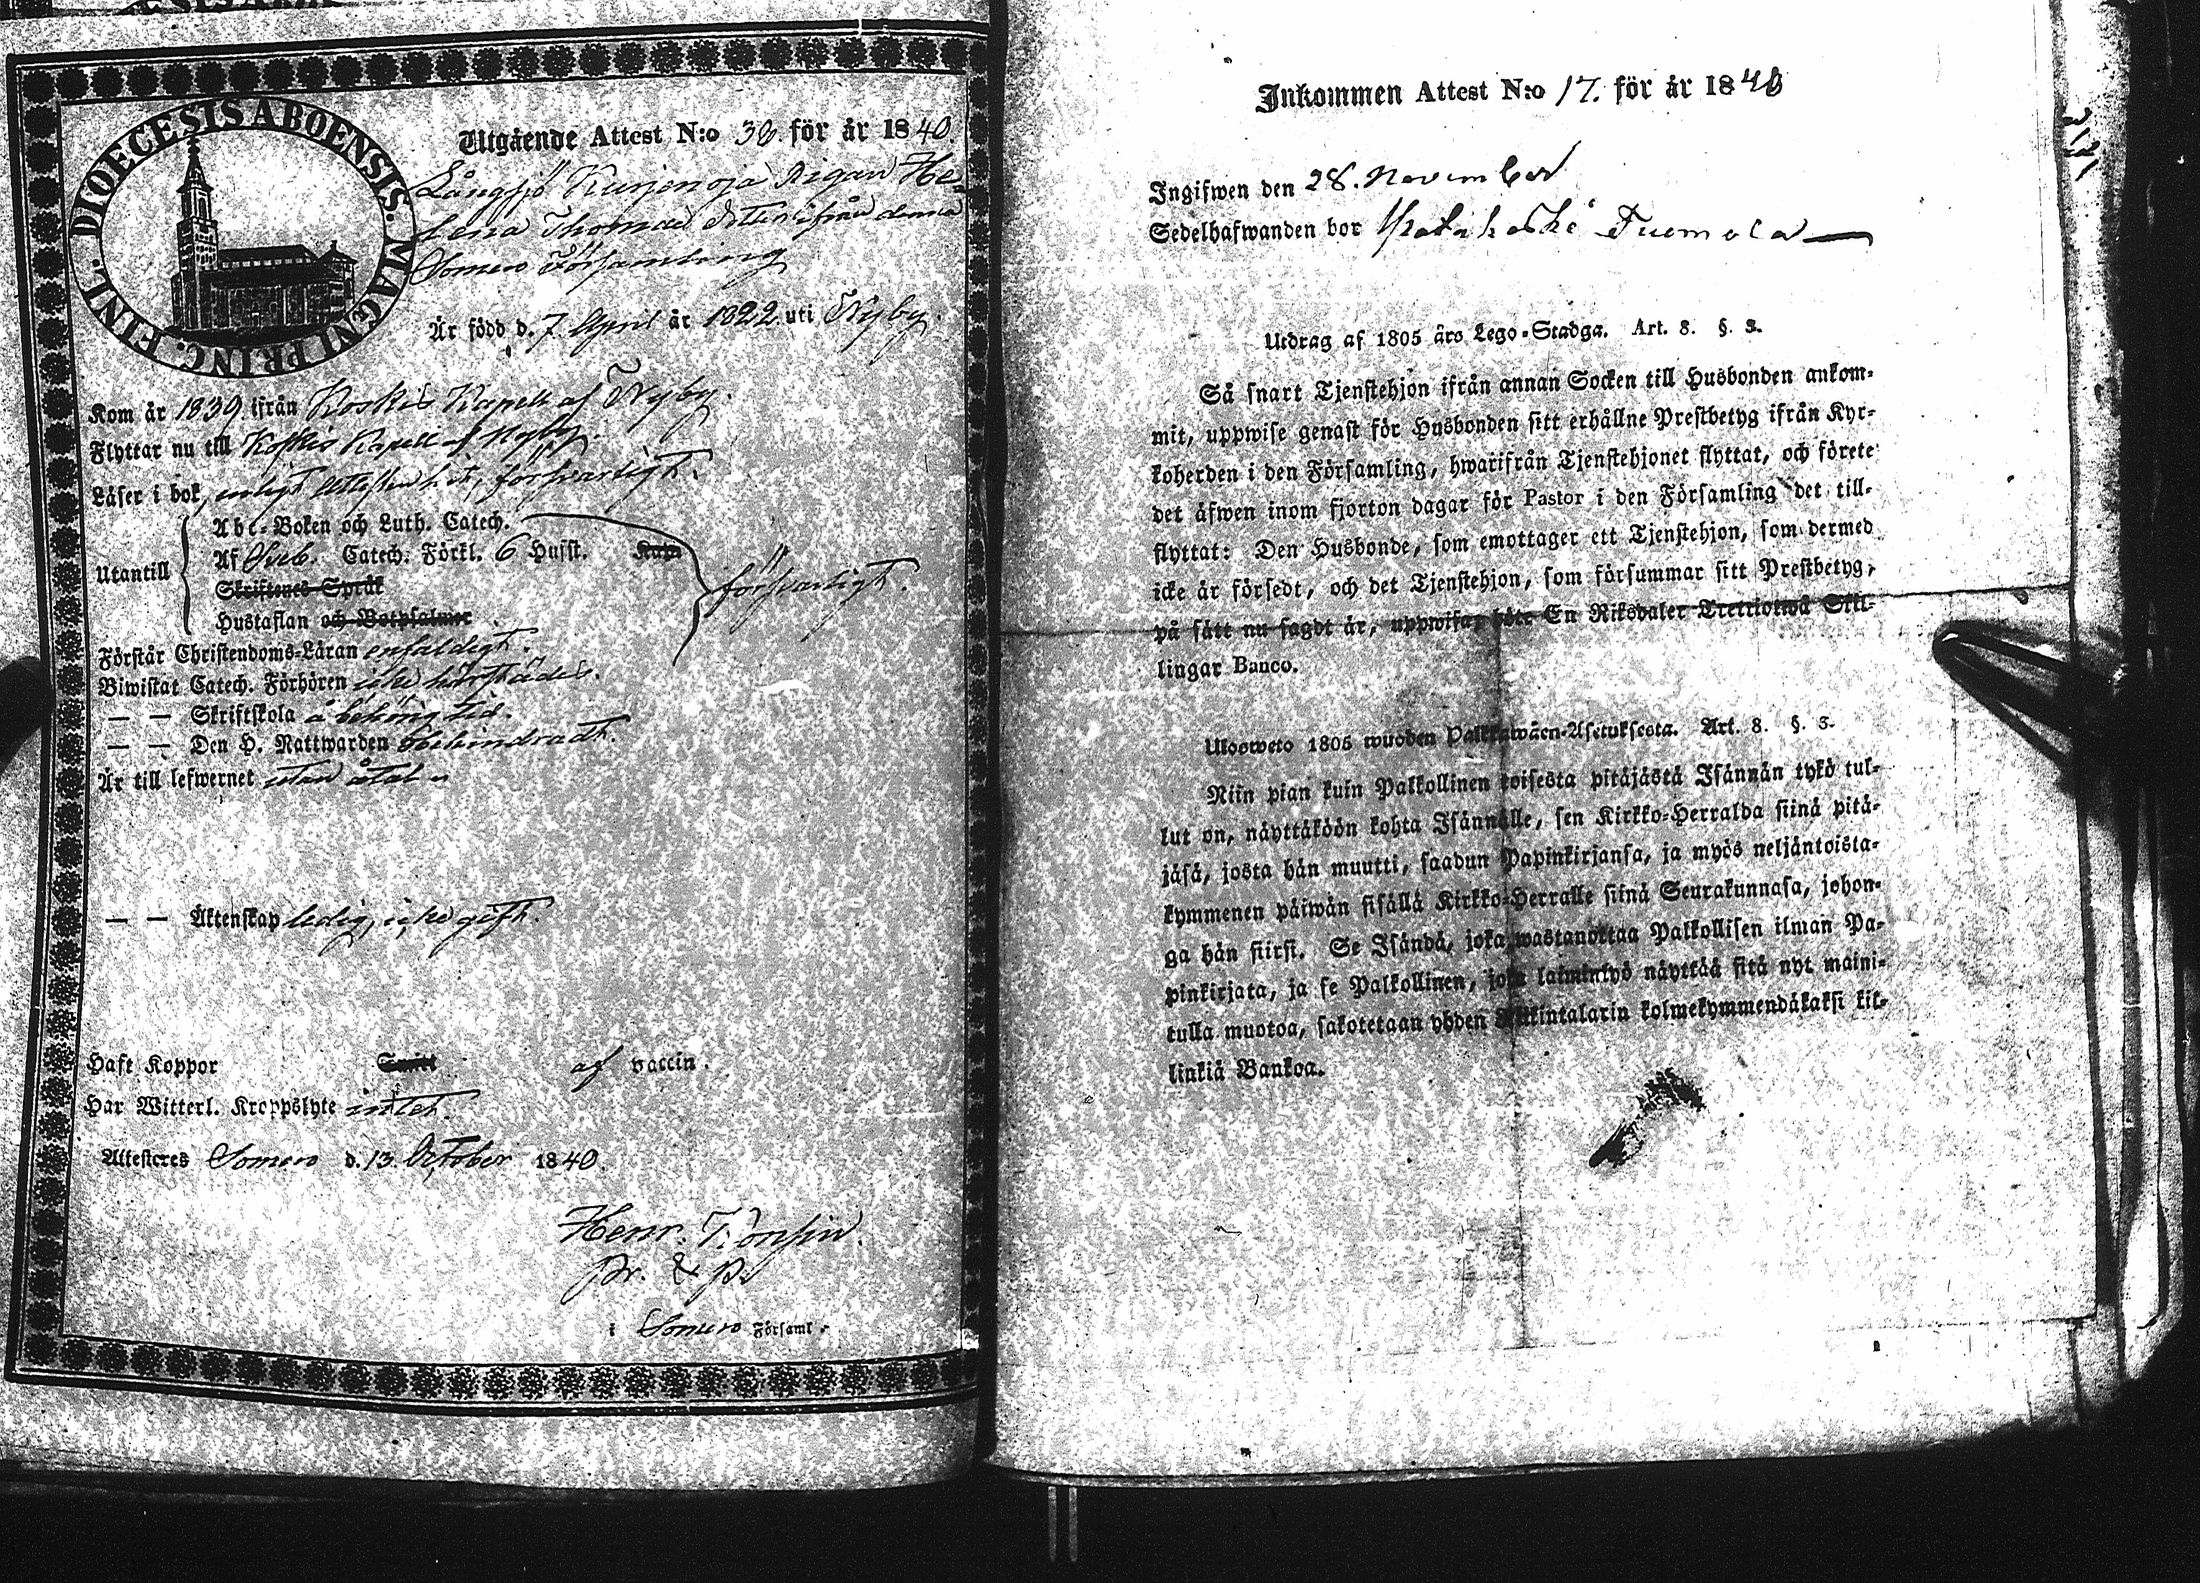 DIOECESIS ABOENSIS. MAGNI PRINC. FINL.
Utgående Attest N:o 38 för år 1840.
Långsjö Kurjenoja Pigan He-
lena Thomas dotter ifrån denna
Somero Församling
Är född d. 7 April år 1822 uti Nyby.
Kom år 1839 ifrån Koskis Kapell af Nyby.
Flyttar nu till Koskis Kapell af Nyby.
Läser i bok, enligt försvarligt.
Utantill
Abc-Boken och Luth. Catech.
Af Sveb. Catech. Förkl. 6 Hufst.
Skriftenes Språk
Hustaflan och Botpsalmer
försvarligt.
Förstår Christendoms-Läran enfaldigt.
Biwistat Catech. Förhören icke härstädes.
— — Skriftskola å behörig tid.
— — Den H. Nattwarden obehindradt.
Är till lefwernet utan åtal
— — Äktenskap ledig, icke gift.
Haft Koppor af vaccin.
Har Witterl. Kroppslyte intet.
Attesteres Somero d. 13 October 1840.
Henr.
pr. & p.
i Somero Församl.
Inkommen Attest N:o 17. för år 1840
Ingifwen den 28. November
Sedelhafwanden bor Tuomola
Utdrag af 1805 års Lego-Stadga. Art. 8. §. 3.
Så snart Tjenstehjon ifrån annan Socken till Husbonden ankom-
mit, uppwise genast för Husbonden sitt erhållne Prestbetyg ifrån Kyr-
koherden i den Församling, hwarifrån Tjenstehjonet flyttat, och förete
det äfwen inom fjorton dagar för Pastor i den Församling det till-
flyttat: Den Husbonde, som emottager ett Tjenstehjon, som dermed
icke är försedt, och det Tjenstehjon, som försummar sitt Prestbetyg,
på sätt nu sagdt är, uppwisa, böte En Riksdaler Trettiotwå Skil-
lingar Banco.
Ulosweto 1805 wuoden Palkkawäen-Asetuksesta. Art. 8. §. 3.
Niin pian kuin Palkollinen toisesta pitäjästä Isännän tykö tul-
lut on, näyttäköön kohta Isännälle, sen Kirkko-Herralda siinä pitä-
jäsä, josta hän muutti, saadun Papinkirjansa, ja myös neljäntoista-
kymmenen päiwän sisällä Kirkko-Herralle siinä Seurakunnasa, johon-
ga hän siirsi. Se Isändä, joka wastanottaa Palkollisen ilman Pa-
pinkirjata, ja se Palkollinen, joka laiminlyö näyttää sitä nyt maini-
tulla muotoa, sakotetaan yhden Riikintalarin kolmekymmendäkaksi kil-
linkiä Bankoa.